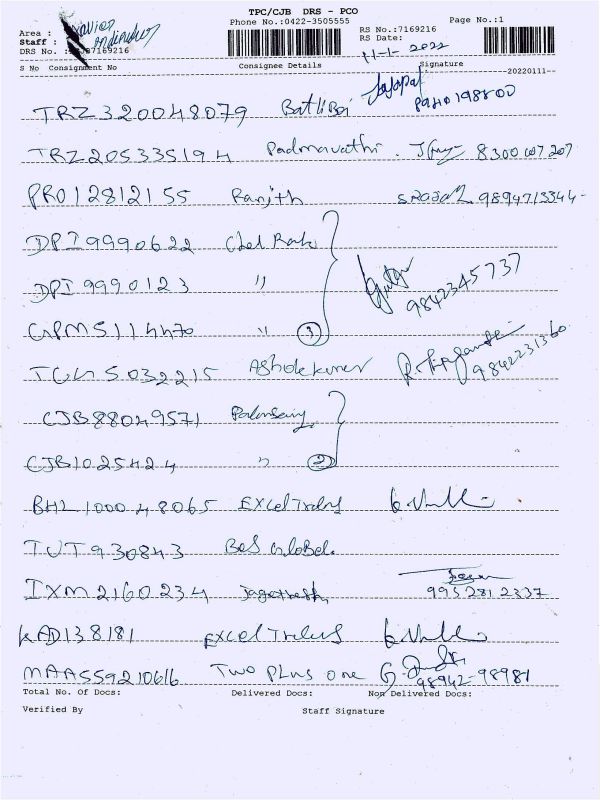 TPC/CJB DRS - PCO
Phone No.:0422-3505555 Page No.:1
Area : Xavier
Staff :
DRS No. : 7169216
RS No.:7169216
RS Date: 11-1-2022
S No Consignment No Consignee Details Signature
20220111
TRZ320048079 Batliboi 8940198800
TRZ205335194 Padmavathi 8300 007 207
PRO12812155 Ranjith 9894713344
DPI9990622
DPI 9990123 " 9842345737
GPM5114470 " 3
5032215 Ashok kumar 9842231360
CJB88049571
CJB1025424 " 2
BHL100048065 Excel Trans
TUT930843 Bes Global
IXM2160234 Jagathesh 995 281 2337
KAD138181 Excel Trans
MAA559210616 Two Plus one 98942-98981
Total No. Of Docs: Delivered Docs: Non Delivered Docs:
Verified By Staff Signature